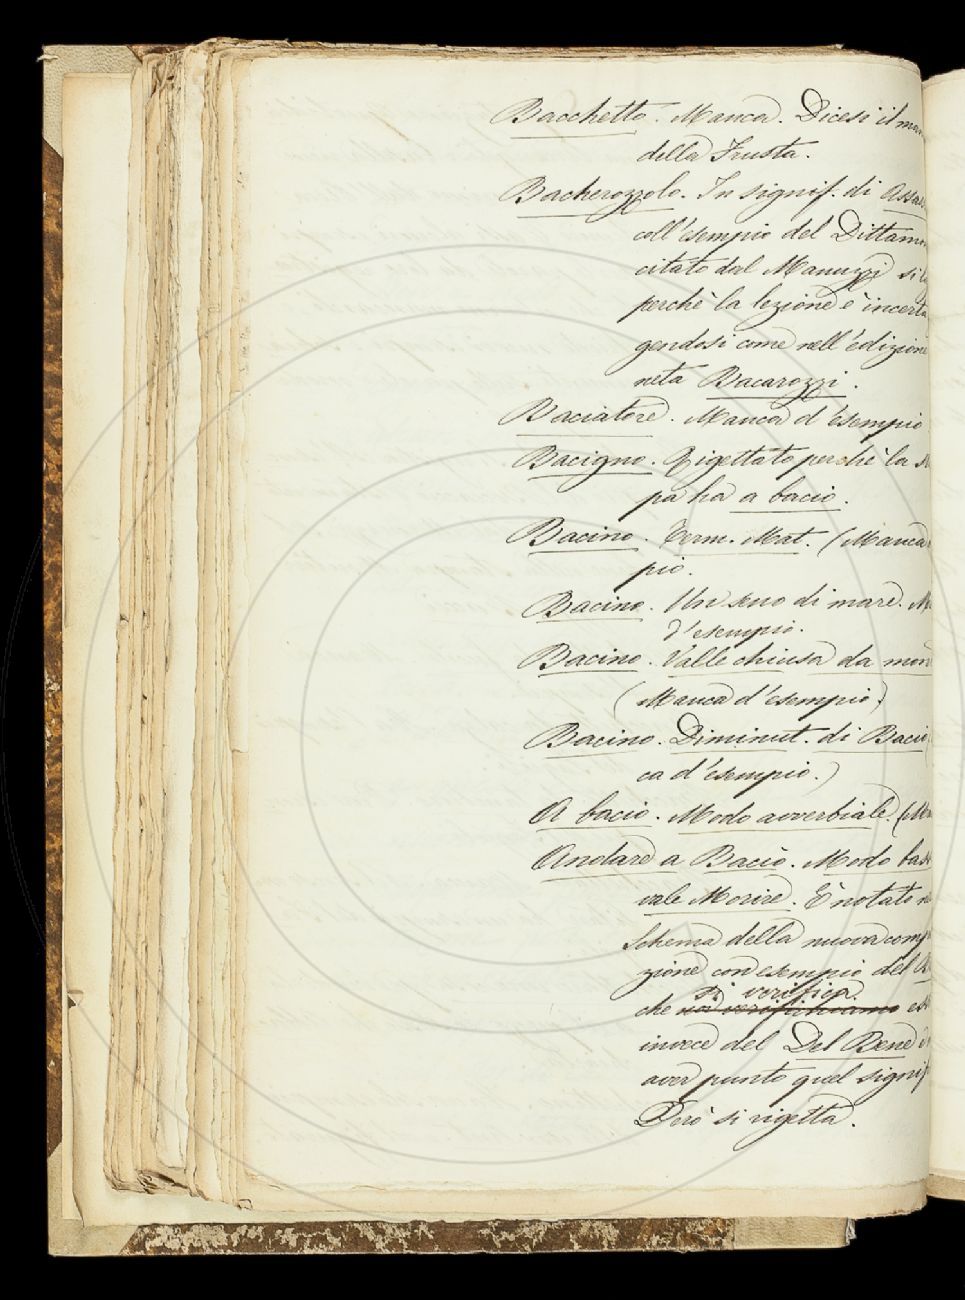 Bacchetto. Manca. Dicesi il man
della Frusta.
Bacherozzolo. In signif. di Assa
coll'esempio del Dittam
citato dal Manuzzi si
perchè la lezione è incerta
gendosi come nell'edizione
neta Bacarozzi.
Baciatore. Manca d'esempio
Bacigno. Rigettato perchè la
pa ha a bacìo.
Bacino. Term. Mat. (Manca
pio.
Bacino. Un seno di mare. M
d'esempio.
Bacino. Valle chiusa da mon
(Manca d'esempio)
Bacino. Diminut. di Bacio
ca d'esempio.)
A bacio. Modo avverbiale. (Man
Andare a Bacìo. Modo bas
vale Morire. È notato
Schema della nuova comp
zione con esempio del
si verifica.
che noi verifichiamo es
invece del Del Bene
aver punto quel signif
Però si rigetta.